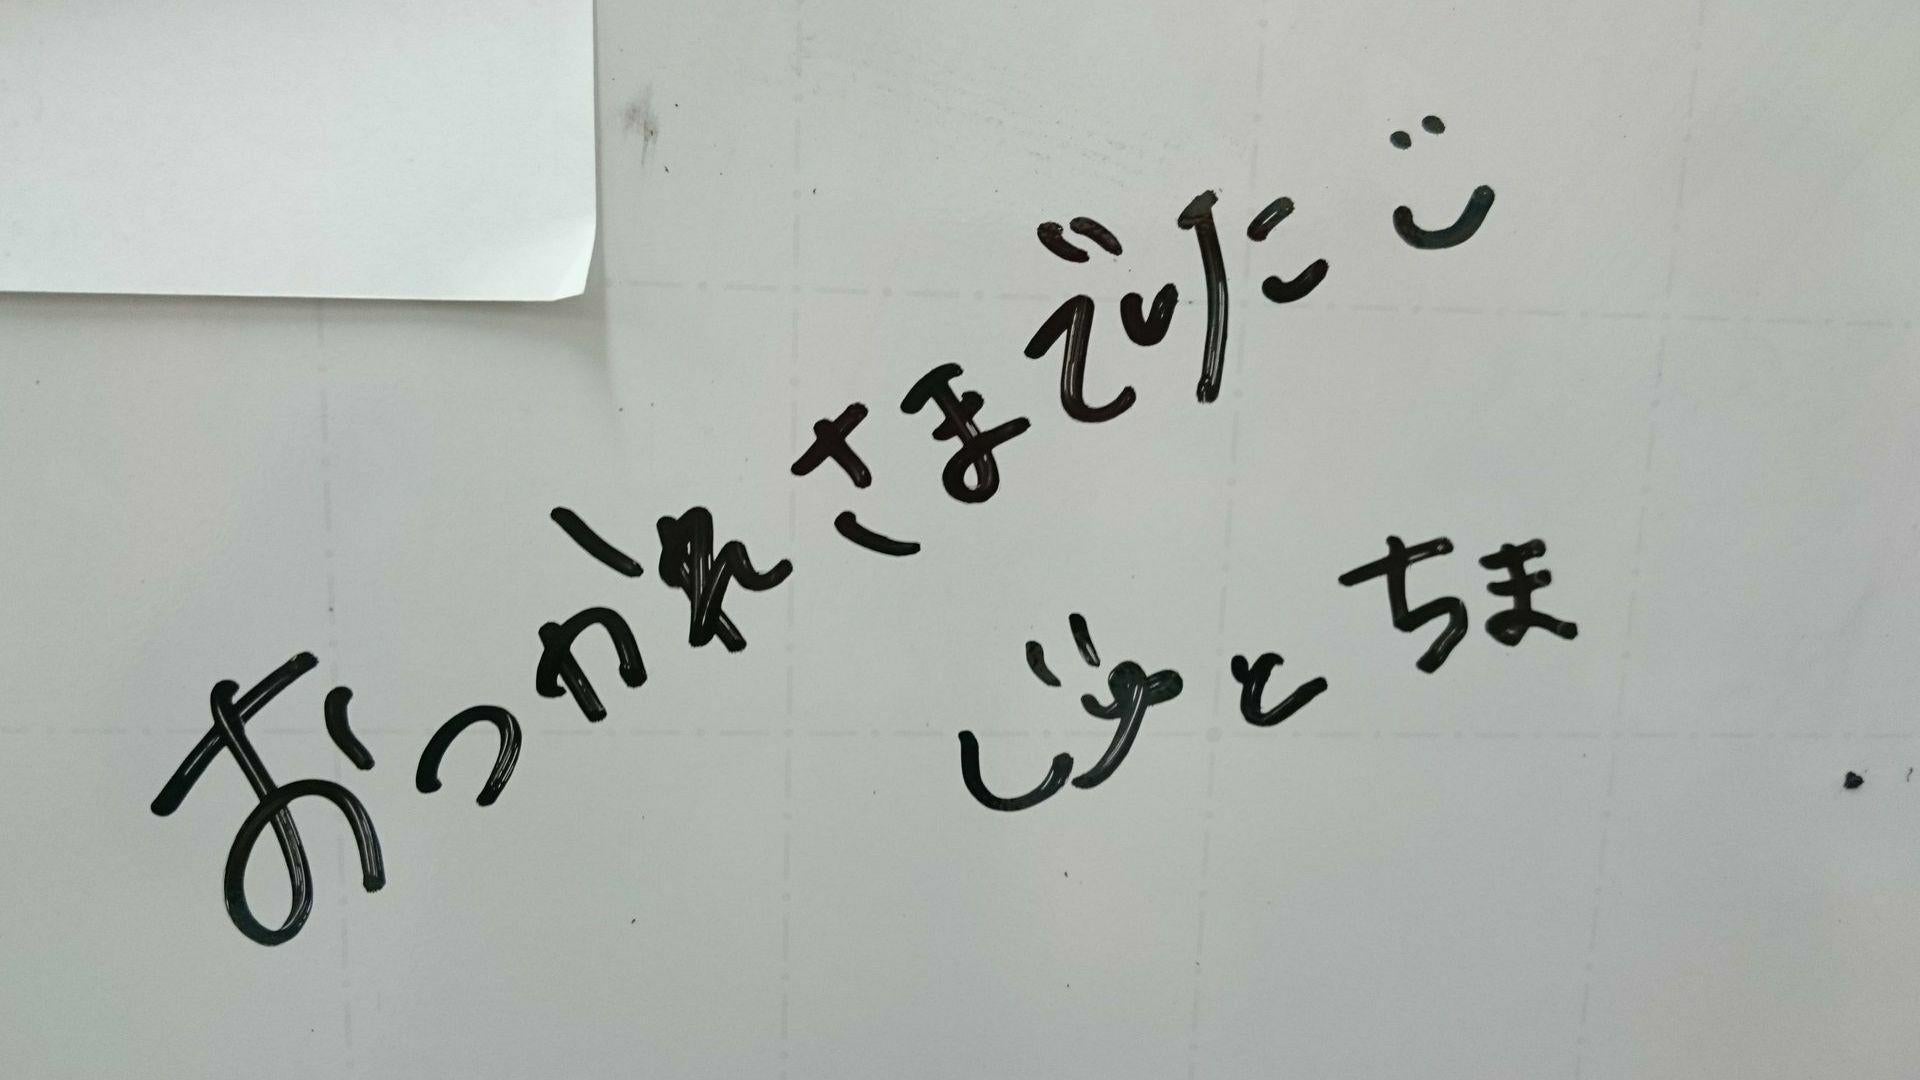 おつかれさまでした
じゅと ちま